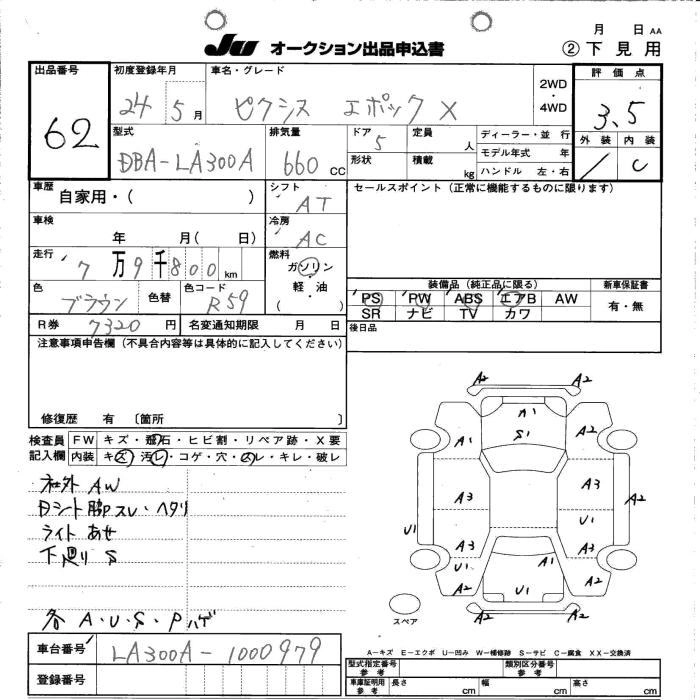 月 日 AA
JU オークション出品申込書
② 下見用
出品番号
62
初度登録年月
24 5月
車名・グレード
ピクシス エポック X
2WD
・
4WD
評価点
3.5
外装 内装
/ C
型式
DBA-LA300A
排気量
660 cc
ドア 5
形状
定員 人
積載 kg
ディーラー・並行
モデル年式 年
ハンドル 左・右
車歴
自家用・( )
シフト
AT
セールスポイント(正常に機能するものに限ります)
車検
年 月( 日)
冷房
AC
走行
7万9千800km
燃料
ガソリン
・
軽・油
( )
色
ブラウン
色替
色コード
R59
装備品(純正品に限る)
新車保証書
PS PW ABS エアB AW
SR ナビ TV カワ
有・無
R券 7320円
名変通知期限 月 日
後日品
注意事項申告欄(不具合内容等は具体的に記入してください)
修復歴 有 〔箇所 〕
検査員
記入欄
FW キズ・飛石・ヒビ割・リペア跡・X要
内装 キズ・汚レ・コゲ・穴・スレ・キレ・破レ
社外 AW
Dシート脚スレ・ヘタリ
ライト あせ
下廻り S
各 A・U・S・P ハゲ
A2 A2
A2 A1 A2
A1 S1 A1
A3 A3
U1 A2
U1
A3 A3
U1 A1
A2 U1 A2
A2 A2
スペア
車台番号
LA300A-1000979
登録番号
A-キズ E-エクボ U-凹み W-補修跡 S-サビ C-腐食 XX-交換済
型式指定番号
参考
類別区分番号
参考
車庫証明用
参考
長さ cm 幅 cm 高さ cm